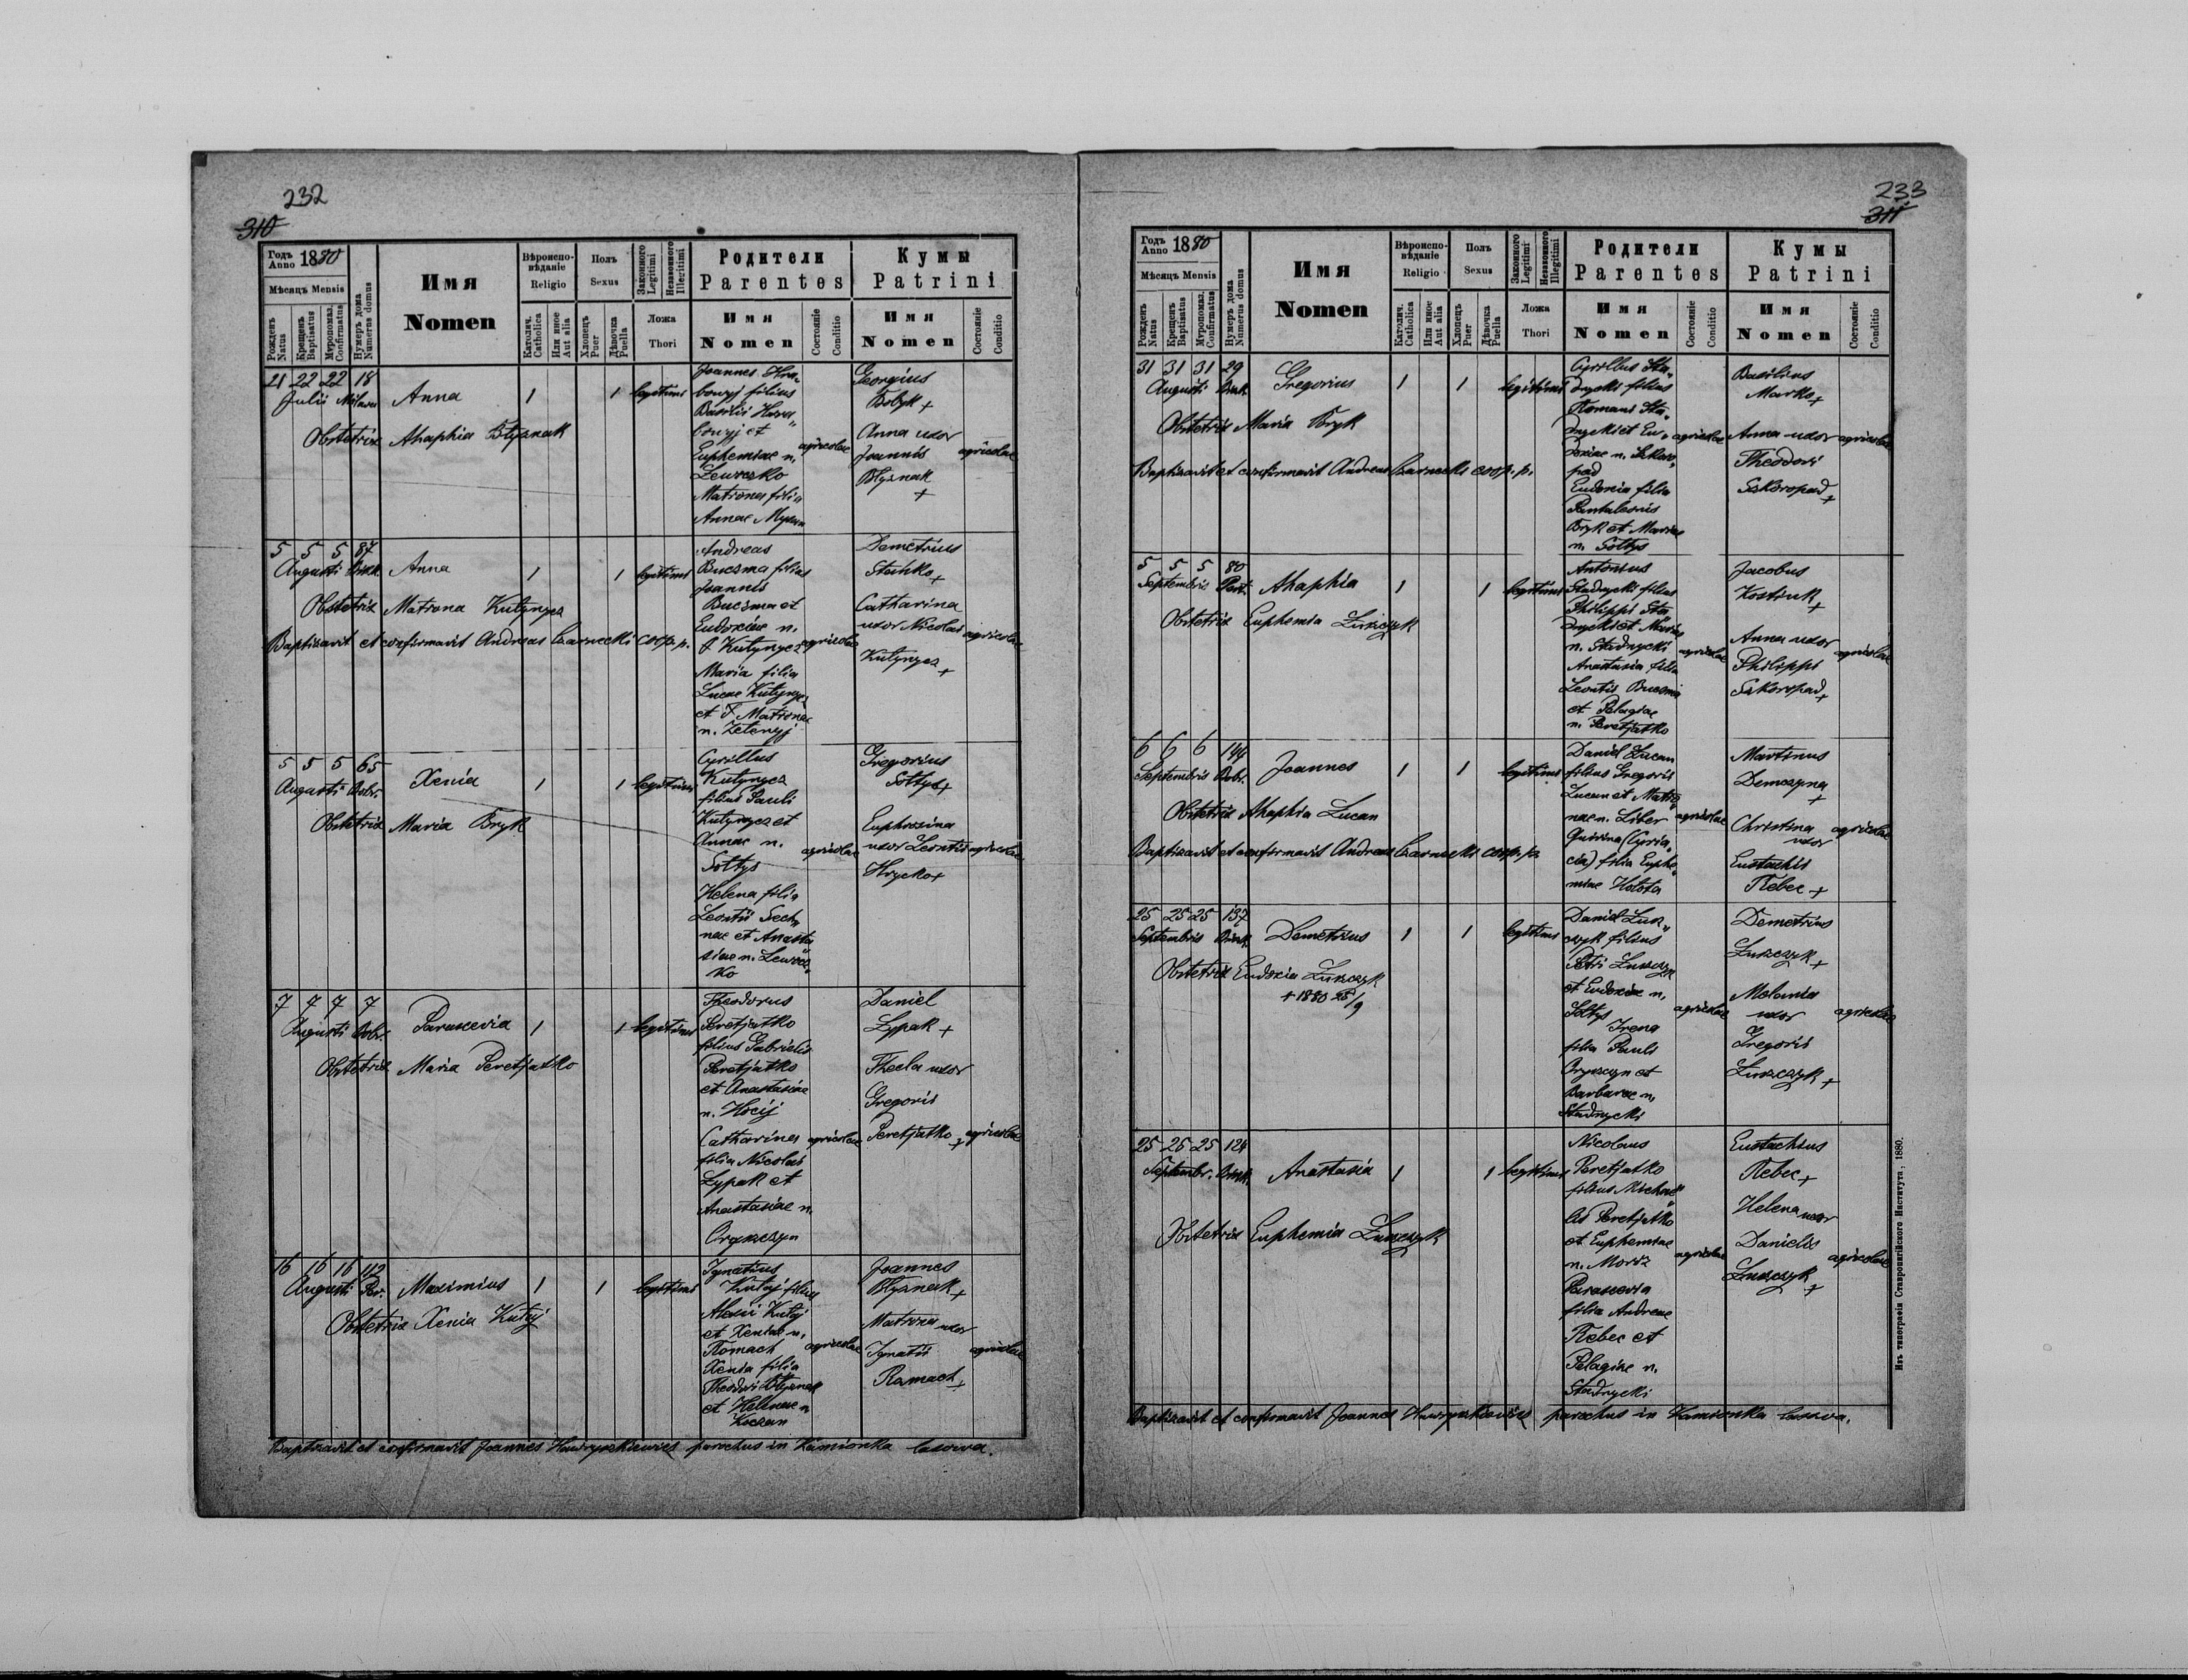 232
310
Годъ Anno 1880
Мѣсяцъ Mensis
Рожденъ Natus
Крещенъ Baptisatus
Муропомаз. Confirmatus
Нумеръ дома Numerus domus
Имя
Nomen
Вѣроиспо-
вѣданіе
Religio
Католич. Catholica
Или иное Aut alia
Полъ
Sexus
Хлопецъ Puer
Дѣвочка Puella
Законного Legitimi
Незаконного Illegitimi
Ложа
Thori
Родители
Parentes
Имя
Nomen
Состояніе Conditio
Кумы
Patrini
Имя
Nomen
Состояніе Conditio
21 22 22 18
Julii
Anna
1 1 legitimi
Obstetrix Ahaphia Błyznak
Joannes Hra-
bowyj filius
Basilii Hra
bowyj et
Euphemiae n.
Lewczko
Matrona filia
Annae
agricolae
Georgius
Bobyk +
Anna uxor
Joannis
Błyznak
+
agricolae
5 5 5 87
Augusti
Anna
1 1 legitimi
Obstetrix Matrona Kutynycz
Baptisavit et confirmavit Andreas Czarnecki coop. p.
Andreas
Buczma filius
Joannis
Buczma et
Eudoxiae n.
Kutynycz
Maria filia
Lucae Kutynycz
et Matronae
n. Zelenyj
agricolae
Demetrius
Stachko +
Catharina
uxor Nicolai
Kutynycz
+
agricolae
5 5 5 65
Augusti Dobr.
Xenia
1 1 legitimi
Obstetrix Maria Bryk
Cyrillus
Kutynycz
filius Pauli
Kutynycz et
Annae n.
Sołtys
Helena filia
Leontii Sech
nae et Anasta
siae n. Lewcz
ko
agricolae
Gregorius
Sołtys +
Euphrosina
uxor Leontii
Hrycko +
agricolae
7 7 7 7
Augusti Dobr.
Parascevia
1 1 legitimi
Obstetrix Maria Peretjatko
Theodorus
Peretjatko
filius Gabrielis
Peretjatko
et Anastasiae
n. Hocij
Catharina
filia Nicolai
Łypak et
Anastasiae n.
Oryszczyn
agricolae
Daniel
Łypak +
Thecla uxor
Gregorii
Peretjatko +
agricolae
16 16 16 112
Augusti Per.
Maximius
1 1 legitimi
Obstetrix Xenia Kutyj
Ignatius
Kutyj filius
Alexii Kutyj
et Xeniae n.
Romach
Xenia filia
Theodori Błyznak
et Helenae n
Koczan
agricolae
Joannes
Błyznak +
Matrona uxor
Ignatii
Romach +
agricolae
Baptisavit et confirmavit Joannes Hawryszkiewicz parochus in Kamionka lasowa.
233
311
Годъ Anno 1880
Мѣсяцъ Mensis
Рожденъ Natus
Крещенъ Baptisatus
Муропомаз. Confirmatus
Нумеръ дома Numerus domus
Имя
Nomen
Вѣроиспо-
вѣданіе
Religio
Католич. Catholica
Или иное Aut alia
Полъ
Sexus
Хлопецъ Puer
Дѣвочка Puella
Законного Legitimi
Незаконного Illegitimi
Ложа
Thori
Родители
Parentes
Имя
Nomen
Состояніе Conditio
Кумы
Patrini
Имя
Nomen
Состояніе Conditio
31 31 31 29
Augusti
Gregorius
1 1 legitimi
Obstetrix Maria Bryk
Baptisavit et confirmavit Andreas Czarnecki coop. p.
Cyrillus Sta-
dnycki filius
Romani Sta-
dnycki et Eu-
doxiae n. Szkoro
pad
Eudoxia filia
Pantaleonis
Bryk et Mariae
n. Sołtys
agricolae
Basilius
Marko +
Anna uxor
Theodori
Szkoropad +
agricolae
5 5 5 80
Septembris
Ahaphia
1 1 legitimi
Obstetrix Euphemia Łuszczyk
Antonius
Stadnycki filius
Philippi Sta
dnycki et Mariae
n. Stadnycki
Anastasia filia
Leontii Buczma
et Pelagiae
n. Peretjatko
agricolae
Jacobus
Kostiuk
+
Anna uxor
Philippi
Szkoropad +
agricolae
6 6 6 144
Septembris Dobr.
Joannes
1 1 legitimi
Obstetrix Ahaphia Lucan
Baptisavit et confirmavit Andreas Czarnecki coop. p.
Daniel Lucan
filius Gregorii
Lucan et Matro
nae n. Liber
Quirina (Cyria
cia) filia Euphe
miae Hołota
agricolae
Martinus
Demczyna
+
Christina
uxor
Eustachii
Rebec +
agricolae
25 25 25 137
Septembris
Demetrius
1 1 legitimi
Obstetrix Eudoxia Łuszczyk
+ 1880 28/9
Daniel Łusz
czyk filius
Petri Łuszczyk
et Eudoxiae n.
Sołtys
Irena
filia Pauli
Oryszczyn et
Barbarae n.
Stadnycki
agricolae
Demetrius
Łuszczyk +
Melania
uxor
Gregorii
Łuszczyk +
agricolae
25 25 25 124
Septembr.
Anastasia
1 1 legitimi
Obstetrix Euphemia Łuszczyk
Nicolaus
Peretjatko
filius Michae
lis Peretjatko
et Euphemiae
n. Moroz
Parascevia
filia Andreae
Rebec et
Pelagiae n.
Stadnycki
agricolae
Eustachius
Rebec +
Helena uxor
Danielis
Łuszczyk
+
agricolae
Baptisavit et confirmavit Joannes Hawryszkiewicz parochus in Kamionka lasowa.
Изъ типографіи Ставропигійского Института, 1880.